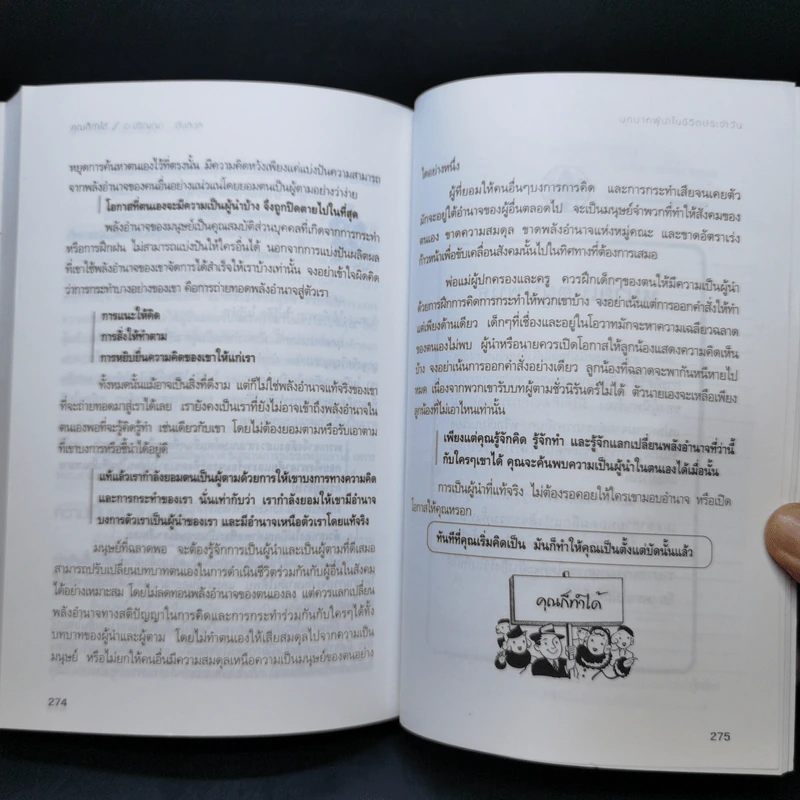 หยุดการค้นหาตนเองไว้ที่ตรงนั้น มีความคิดหวังเพียงแค่แบ่งปันความสามารถ
จากพลังอำนาจของตนอื่นอย่างแน่วแน่โดยยอมตนเป็นผู้ตามอย่างว่าง่าย
โอกาสที่ตนเองจะมีความเป็นผู้นำบ้าง จึงถูกปิดตายไปในที่สุด
พลังอำนาจของมนุษย์เป็นคุณสมบัติส่วนบุคคลที่เกิดจากการกระทำ
หรือการฝึกฝน ไม่สามารถแบ่งปันให้ใครอื่นได้ นอกจากการแบ่งปันผลิตผล
ที่เขาใช้พลังอำนาจของเขาจัดการได้สำเร็จให้เราบ้างเท่านั้น จงอย่าเข้าใจผิดคิด
ว่าการกระทำบางอย่างของเขา คือการถ่ายทอดพลังอำนาจสู่ตัวเรา
การแนะให้คิด
การสั่งให้ทำตาม
การหยิบยื่นความคิดของเขาให้แก่เรา
ทั้งหมดนั้นแม้อาจเป็นสิ่งที่ดีงาม แต่ก็ไม่ใช่พลังอำนาจแท้จริงของเขา
ที่จะถ่ายทอดมาสู่เราได้เลย เรายังคงเป็นเราที่ยังไม่อาจเข้าถึงพลังอำนาจใน
ตนเองพอที่จะรู้คิดรู้ทำ เช่นเดียวกับเขา โดยไม่ต้องยอมตามหรือรับเอาตาม
ที่เขาบงการหรือชี้นำได้อยู่ดี
แท้แล้วเรากำลังยอมตนเป็นผู้ตามด้วยการให้เขาบงการทางความคิด
และการกระทำของเรา นั่นเท่ากับว่า เรากำลังยอมให้เขามีอำนาจ
บงการตัวเราเป็นผู้นำของเรา และมีอำนาจเหนือตัวเราโดยแท้จริง
มนุษย์ที่ฉลาดพอ จะต้องรู้จักการเป็นผู้นำและเป็นผู้ตามที่ดีเสมอ
สามารถปรับเปลี่ยนบทบาทตนเองในการดำเนินชีวิตร่วมกันกับผู้อื่นในสังคม
ได้อย่างเหมาะสม โดยไม่ลดทอนพลังอำนาจของตนเองลง แต่ควรแลกเปลี่ยน
พลังอำนาจทางสติปัญญาในการคิดและการกระทำร่วมกันกับใครๆได้ทั้ง
บทบาทของผู้นำและผู้ตาม โดยไม่ทำตนเองให้เสียสมดุลไปจากความเป็น
มนุษย์ หรือไม่ยกให้คนอื่นมีความสมดุลเหนือความเป็นมนุษย์ของตนอย่าง
274
บทบาทผู้นำในชีวิตประจำวัน
ใดอย่างหนึ่ง
ผู้ที่ยอมให้คนอื่นๆบงการการคิด และการกระทำเสียจนเคยตัว
มักจะอยู่ใต้อำนาจของผู้อื่นตลอดไป จะเป็นมนุษย์จำพวกที่ทำให้สังคมของ
ตนเอง ขาดความสมดุล ขาดพลังอำนาจแห่งหมู่คณะ และขาดอัตราเร่ง
ก้าวหน้าเพื่อขับเคลื่อนสังคมนั้นไปในทิศทางที่ต้องการเสมอ
พ่อแม่ผู้ปกครองและครู ควรฝึกเด็กๆของตนให้มีความเป็นผู้นำ
ด้วยการฝึกการคิดการกระทำให้พวกเขาบ้าง จงอย่าเน้นแต่การออกคำสั่งให้ทำ
แต่เพียงด้านเดียว เด็กๆที่เชื่องและอยู่ในโอวาทมักจะหาความเฉลียวฉลาด
ของตนเองไม่พบ ผู้นำหรือนายควรเปิดโอกาสให้ลูกน้องแสดงความคิดเห็น
บ้าง จงอย่าเน้นการออกคำสั่งอย่างเดียว ลูกน้องที่ฉลาดจะพากันหนีหายไป
หมด เนื่องจากพวกเขารับบทผู้ตามชั่วนิรันดร์ไม่ได้ ตัวนายเองจะเหลือเพียง
ลูกน้องที่ไม่เอาไหนเท่านั้น
เพียงแต่คุณรู้จักคิด รู้จักทำ และรู้จักแลกเปลี่ยนพลังอำนาจที่ว่านี้
กับใครๆเขาได้ คุณจะค้นพบความเป็นผู้นำในตนเองได้เมื่อนั้น
การเป็นผู้นำที่แท้จริง ไม่ต้องรอคอยให้ใครเขามอบอำนาจ หรือเปิด
โอกาสให้คุณหรอก
ทันทีที่คุณเริ่มคิดเป็น มันก็ทำให้คุณเป็นตั้งแต่บัดนั้นแล้ว
คุณก็ทำได้
275